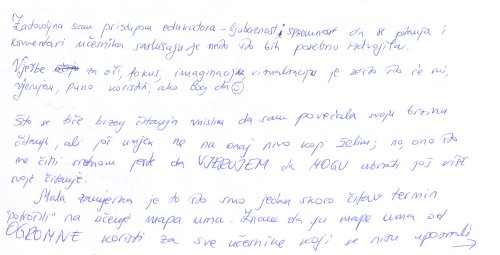 Zadovoljna sam pristupom edukatora - ljubaznost i spremnost da se pitanja i
komentari učesnika saslušaju je nešto što bih posebno izdvojila.
Vježbe za oči, fokus, imaginaciju, vizualizaciju je nešto što će mi,
vjerujem, puno koristiti, ako Bog da ☺.
Što se tiče brzog čitanja mislim da sam povećala svoju brzinu
čitanja, ali još uvijek ne na onaj nivo koji želim; no, ono što
me čini sretnom jeste da VJERUJEM da MOGU ubrzati još više
svoje čitanje.
Mala zamjerka je to što smo jedan skoro čitav termin
"potrošili" na učenje mapa uma. Znam da su mape uma od
OGROMNE koristi za sve učesnike koji se nisu upoznali →